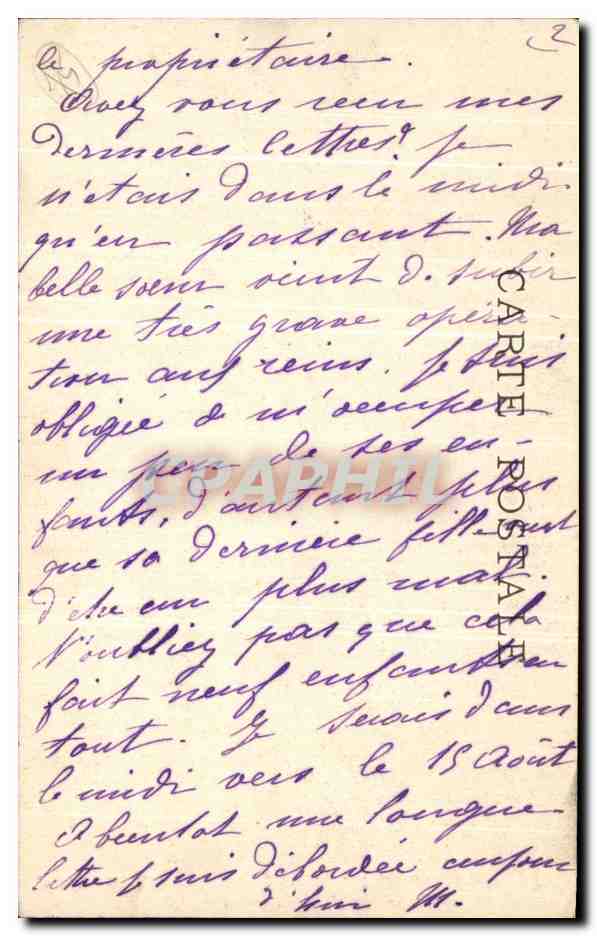 2
le propriétaire.
Avez vous reçu mes
dernières lettres? Je
n'étais dans le midi
qu'en passant. Ma
belle sœur vient d. subir
une très grave opéra-
tion aux reins. Je suis
obligée de m'occuper
un peu de ses en-
fants, d'autant plus
que sa dernière fille vient
d'être au plus mal.
N'oubliez pas que cela
fait neuf enfants en
tout. Je serais dans
le midi vers le 15 Août
A bientôt une longue
lettre je suis débordée aujour
d'hui M.
CARTE POSTALE
CPAPHIL